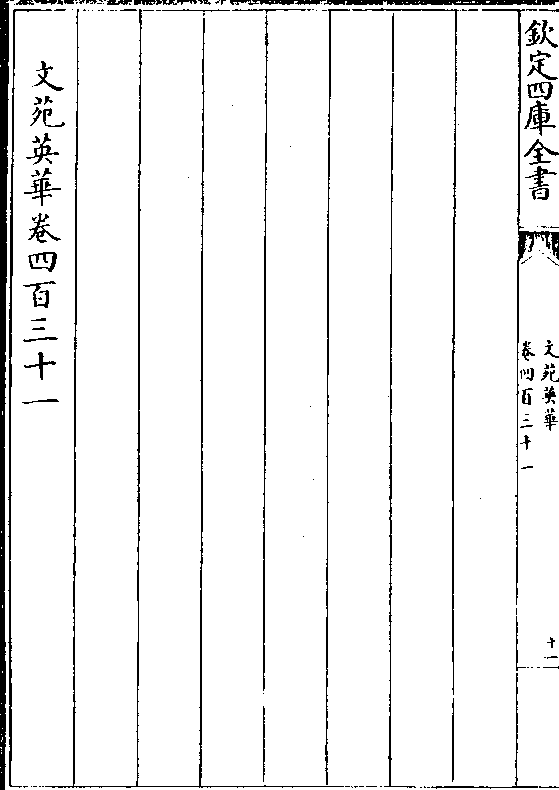 欽定四庫全書
文苑英華
卷四百三十一
十一
文苑英華卷四百三十一